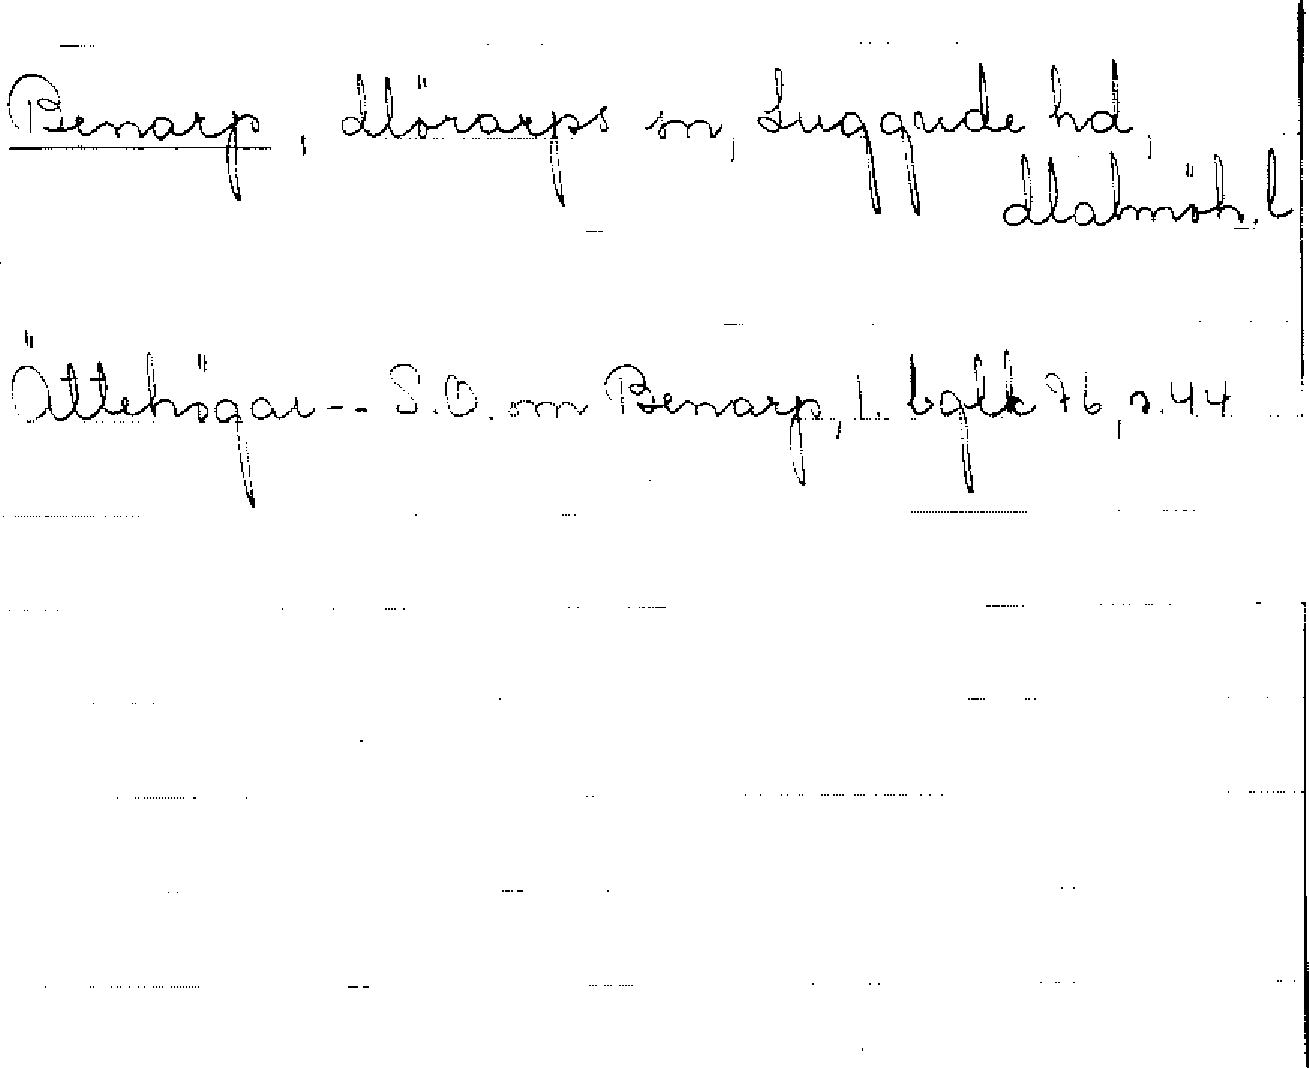 Benarp, Mörarps sn, Luggude hd,
Malmöh. l
Ättehögar -- S.O. om Benarp, L. bglk 76, s. 44